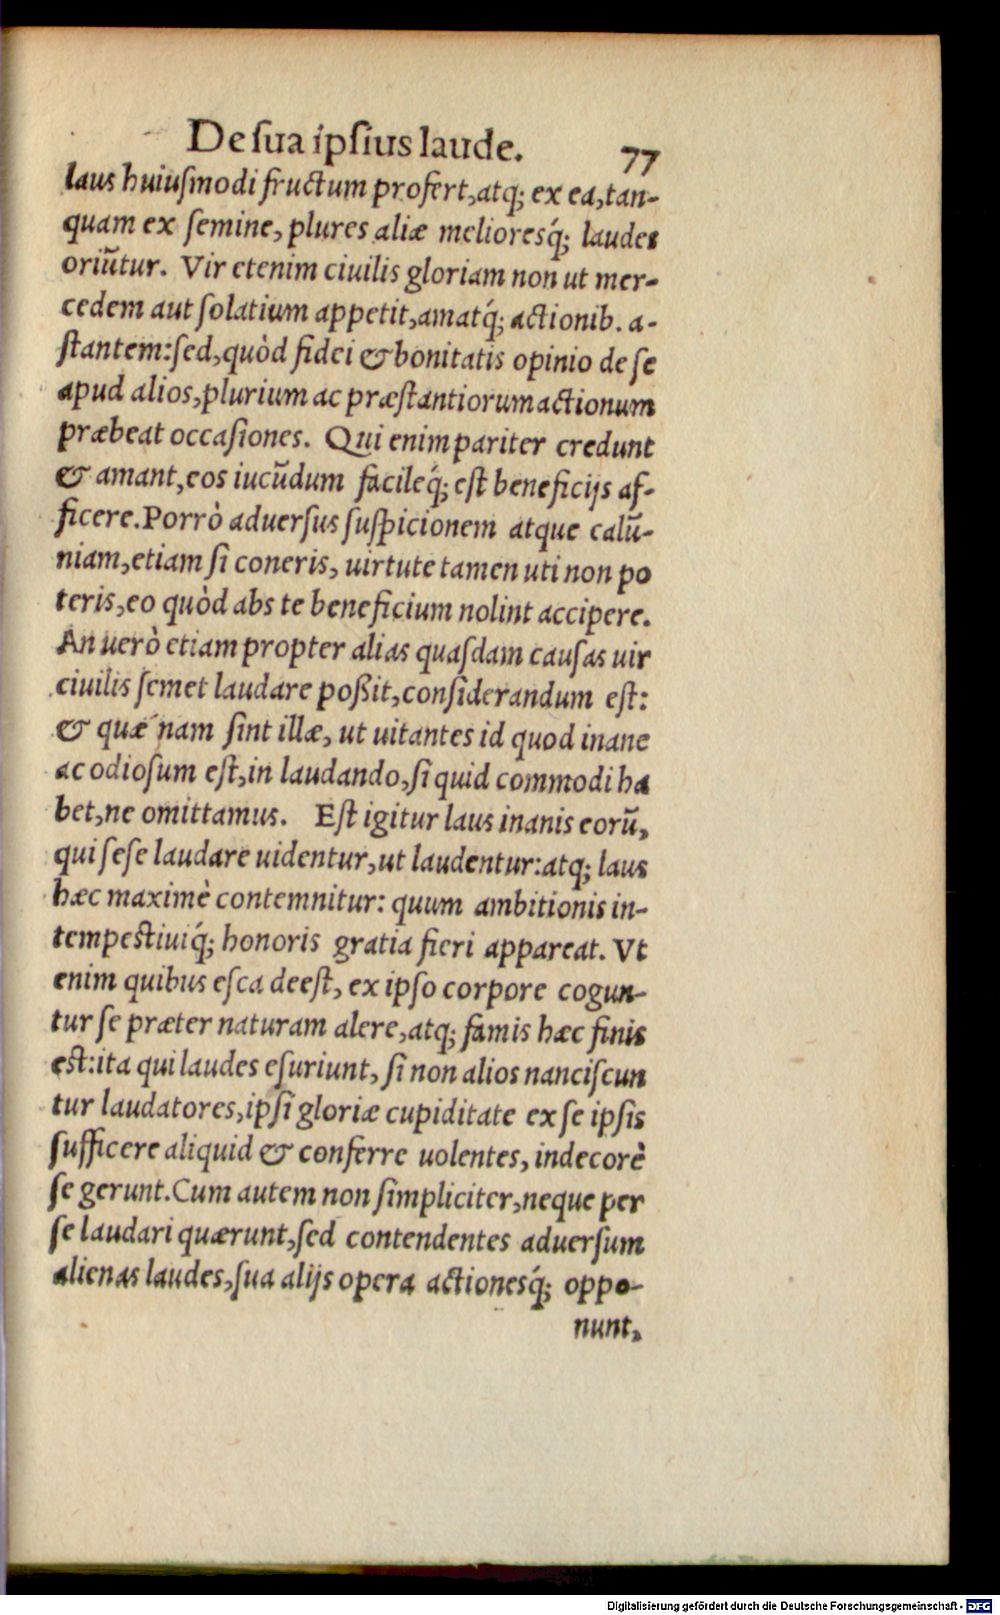 De ſua ipſius laude. 77
laus huiuſmodi fructum profert, atq; ex ea, tan-
quam ex ſemine, plures aliæ melioresq́; laudes
oriūtur. Vir etenim ciuilis gloriam non ut mer-
cedem aut ſolatium appetit, amatq́; actionib. a-
ſtantem: ſed, quòd fidei & bonitatis opinio de ſe
apud alios, plurium ac præſtantiorum actionum
præbeat occaſiones. Qui enim pariter credunt
& amant, eos iucūdum facileq́; eſt beneficijs af-
ficere. Porrò aduerſus ſuſpicionem atque calū-
niam, etiam ſi coneris, uirtute tamen uti non po
teris, eo quòd abs te beneficium nolint accipere.
An uerò etiam propter alias quaſdam cauſas uir
ciuilis ſemet laudare poßit, conſiderandum eſt:
& quæ nam ſint illæ, ut uitantes id quod inane
ac odioſum eſt, in laudando, ſi quid commodi ha
bet, ne omittamus. Eſt igitur laus inanis eorū,
qui ſeſe laudare uidentur, ut laudentur: atq; laus
hæc maximè contemnitur: quum ambitionis in-
tempeſtiuiq́; honoris gratia fieri appareat. Vt
enim quibus eſca deeſt, ex ipſo corpore cogun-
tur ſe præter naturam alere, atq; famis hæc finis
eſt: ita qui laudes eſuriunt, ſi non alios nanciſcun
tur laudatores, ipſi gloriæ cupiditate ex ſe ipſis
ſufficere aliquid & conferre uolentes, indecorè
ſe gerunt. Cum autem non ſimpliciter, neque per
ſe laudari quærunt, ſed contendentes aduerſum
alienas laudes, ſua alijs opera actionesq́; oppo-
nunt,
Digitalisierung gefördert durch die Deutsche Forschungsgemeinschaft - DFG